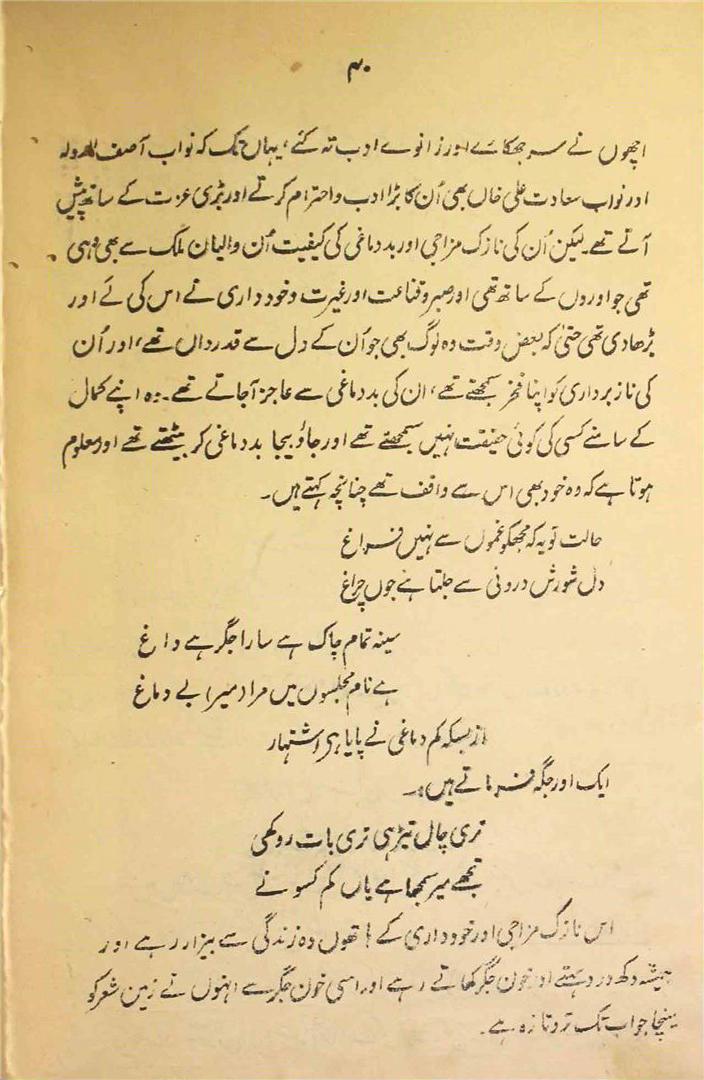 ۴۰
اچھوں نے سر جھکائے اور زانوے ادب تہ کئے، یہاں تک کہ نواب آصف الدولہ
اور نواب سعادت علی خاں بھی اُن کا بڑا ادب و احترام کرتے اور بڑی عزت کے ساتھ پیش
آتے تھے۔ لیکن اُن کی نازک مزاجی اور بد دماغی کی کیفیت اُن والیان ملک سے بھی وہی
تھی جو اوروں کے ساتھ تھی اور صبر و قناعت اور غیرت و خود داری نے اس کی لَے اور
بڑھا دی تھی حتیٰ کہ بعض وقت وہ لوگ بھی جو اُن کے دل سے قدرداں تھے، اور اُن
کی ناز برداری کو اپنا فخر سمجھتے تھے، ان کی بد دماغی سے عاجز آجاتے تھے۔ وہ اپنے کمال
کے سامنے کسی کی کوئی حقیقت نہیں سمجھتے تھے اور جاؤ بیجا بد دماغی کر بیٹھتے تھے اور معلوم
ہوتا ہے کہ وہ خود بھی اس سے واقف تھے چنانچہ کہتے ہیں۔
حالت تو یہ کہ مجھکو غموں سے نہیں فراغ
دل شورش درونی سے جلتا ہے جوں چراغ
سینہ تمام چاک ہے سارا جگر ہے داغ
ہے نام مجلسوں میں مرا میر بے دماغ
از بسکہ کم دماغی نے پایا ہی اشتہار
ایک اور جگہ فرماتے ہیں:۔
تری چال ٹیڑہی تری بات روکھی
تجھے میر سمجھا ہے یاں کم کسو نے
اس نازک مزاجی اور خودداری کے ہاتھوں وہ زندگی سے بیزار رہے اور
ہمیشہ دکھ درد سہتے اور خون جگر کھاتے رہے اور اسی خون جگر سے انہوں نے زمین شعر کو
سینچا جو اب تک تر و تازہ ہے۔